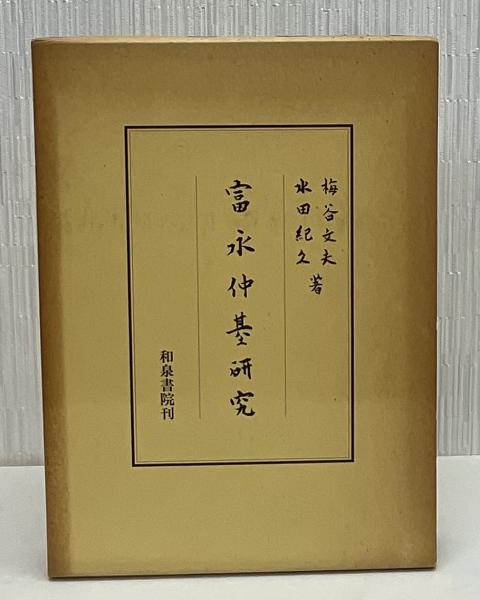 梅谷文夫
水田紀久 著
富永仲基研究
和泉書院刊